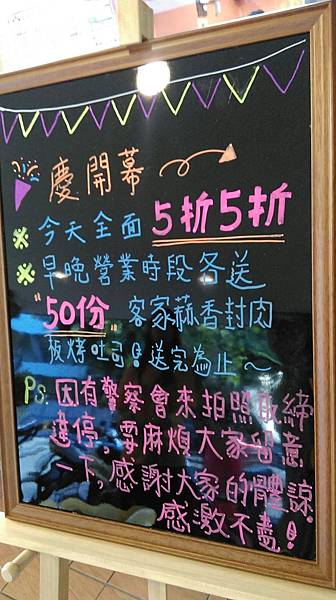 慶開幕
※ 今天全面 5折5折
※ 早晚營業時段各送
"50份" 客家蒜香封肉
板烤吐司！送完為止～
PS: 因有警察會來拍照取締
違停，要麻煩大家留意
一下，感謝大家的體諒
感激不盡！